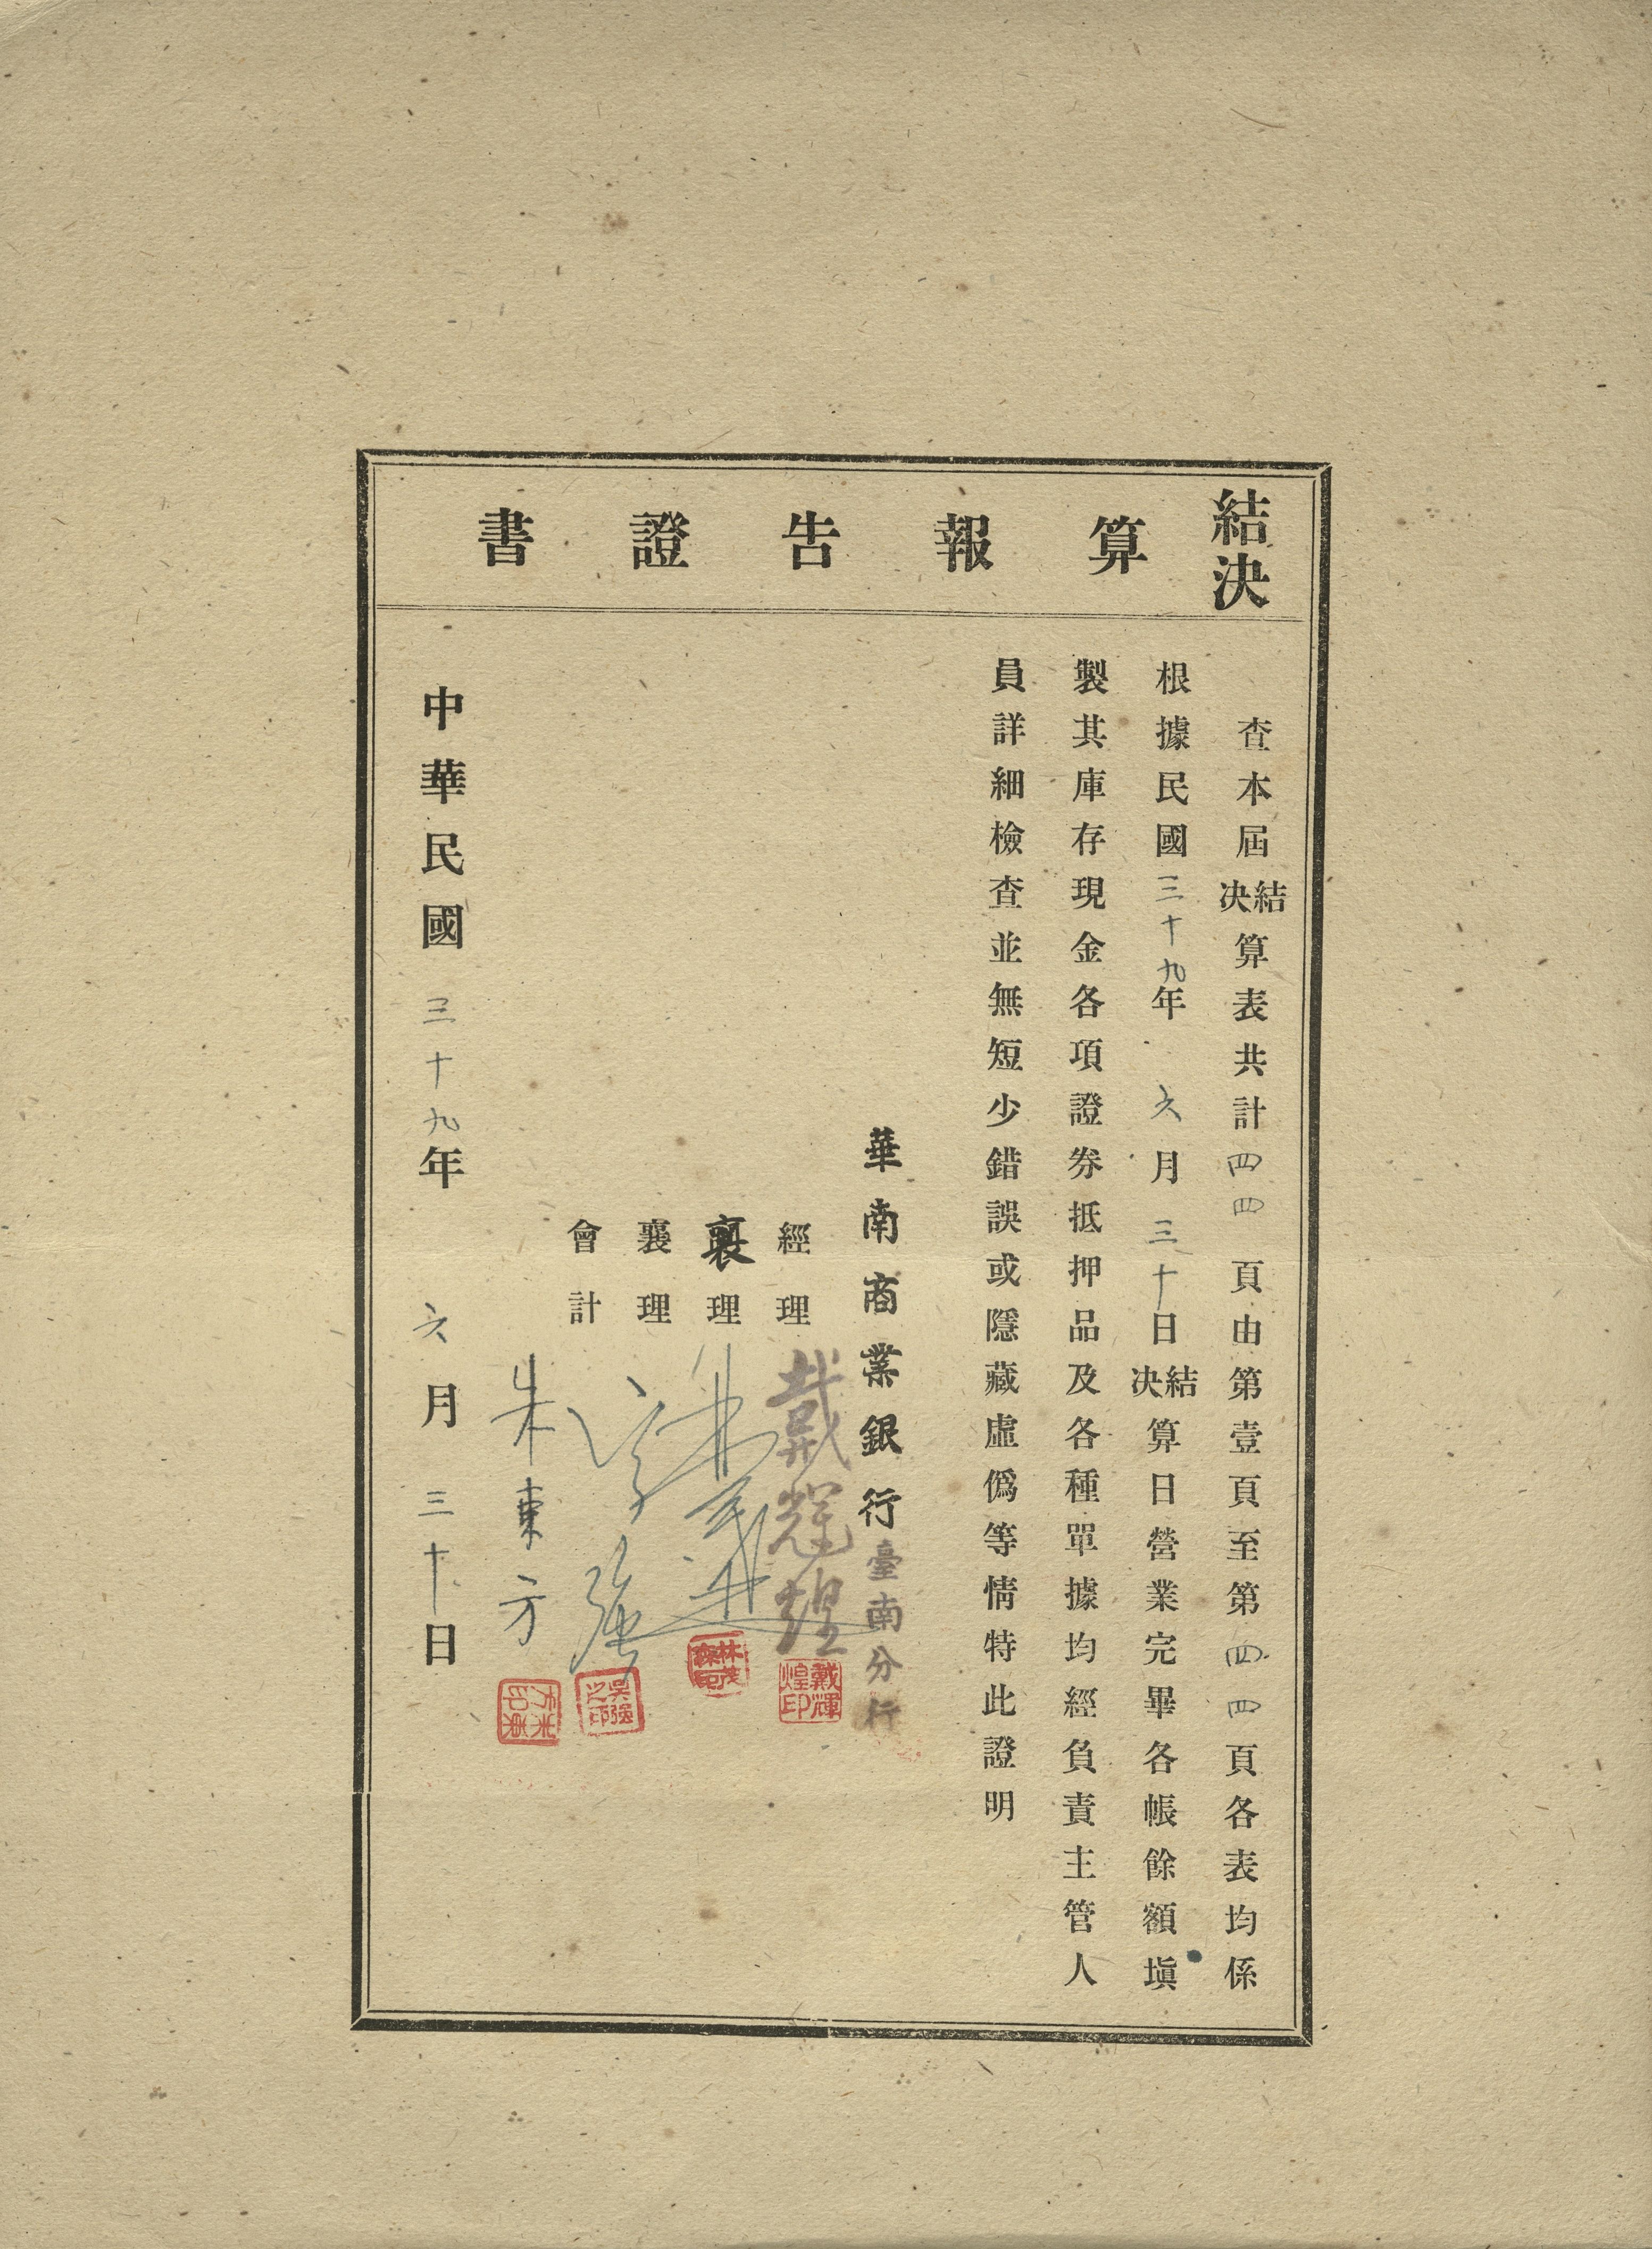 結決算報告證書
查本屆結決算表共計四四頁由第壹頁至第四四頁各表均係
根據民國三十九年六月三十日結決算日營業完畢各帳餘額塡
製其庫存現金各項證券抵押品及各種單據均經負責主管人
員詳細檢查並無短少錯誤或隱藏虛僞等情特此證明
華南商業銀行臺南分行
經理 戴輝煌 戴輝煌印
襄理 林茂森印
襄理 吳強 吳强之印
會計 朱東方
中華民國三十九年六月三十日